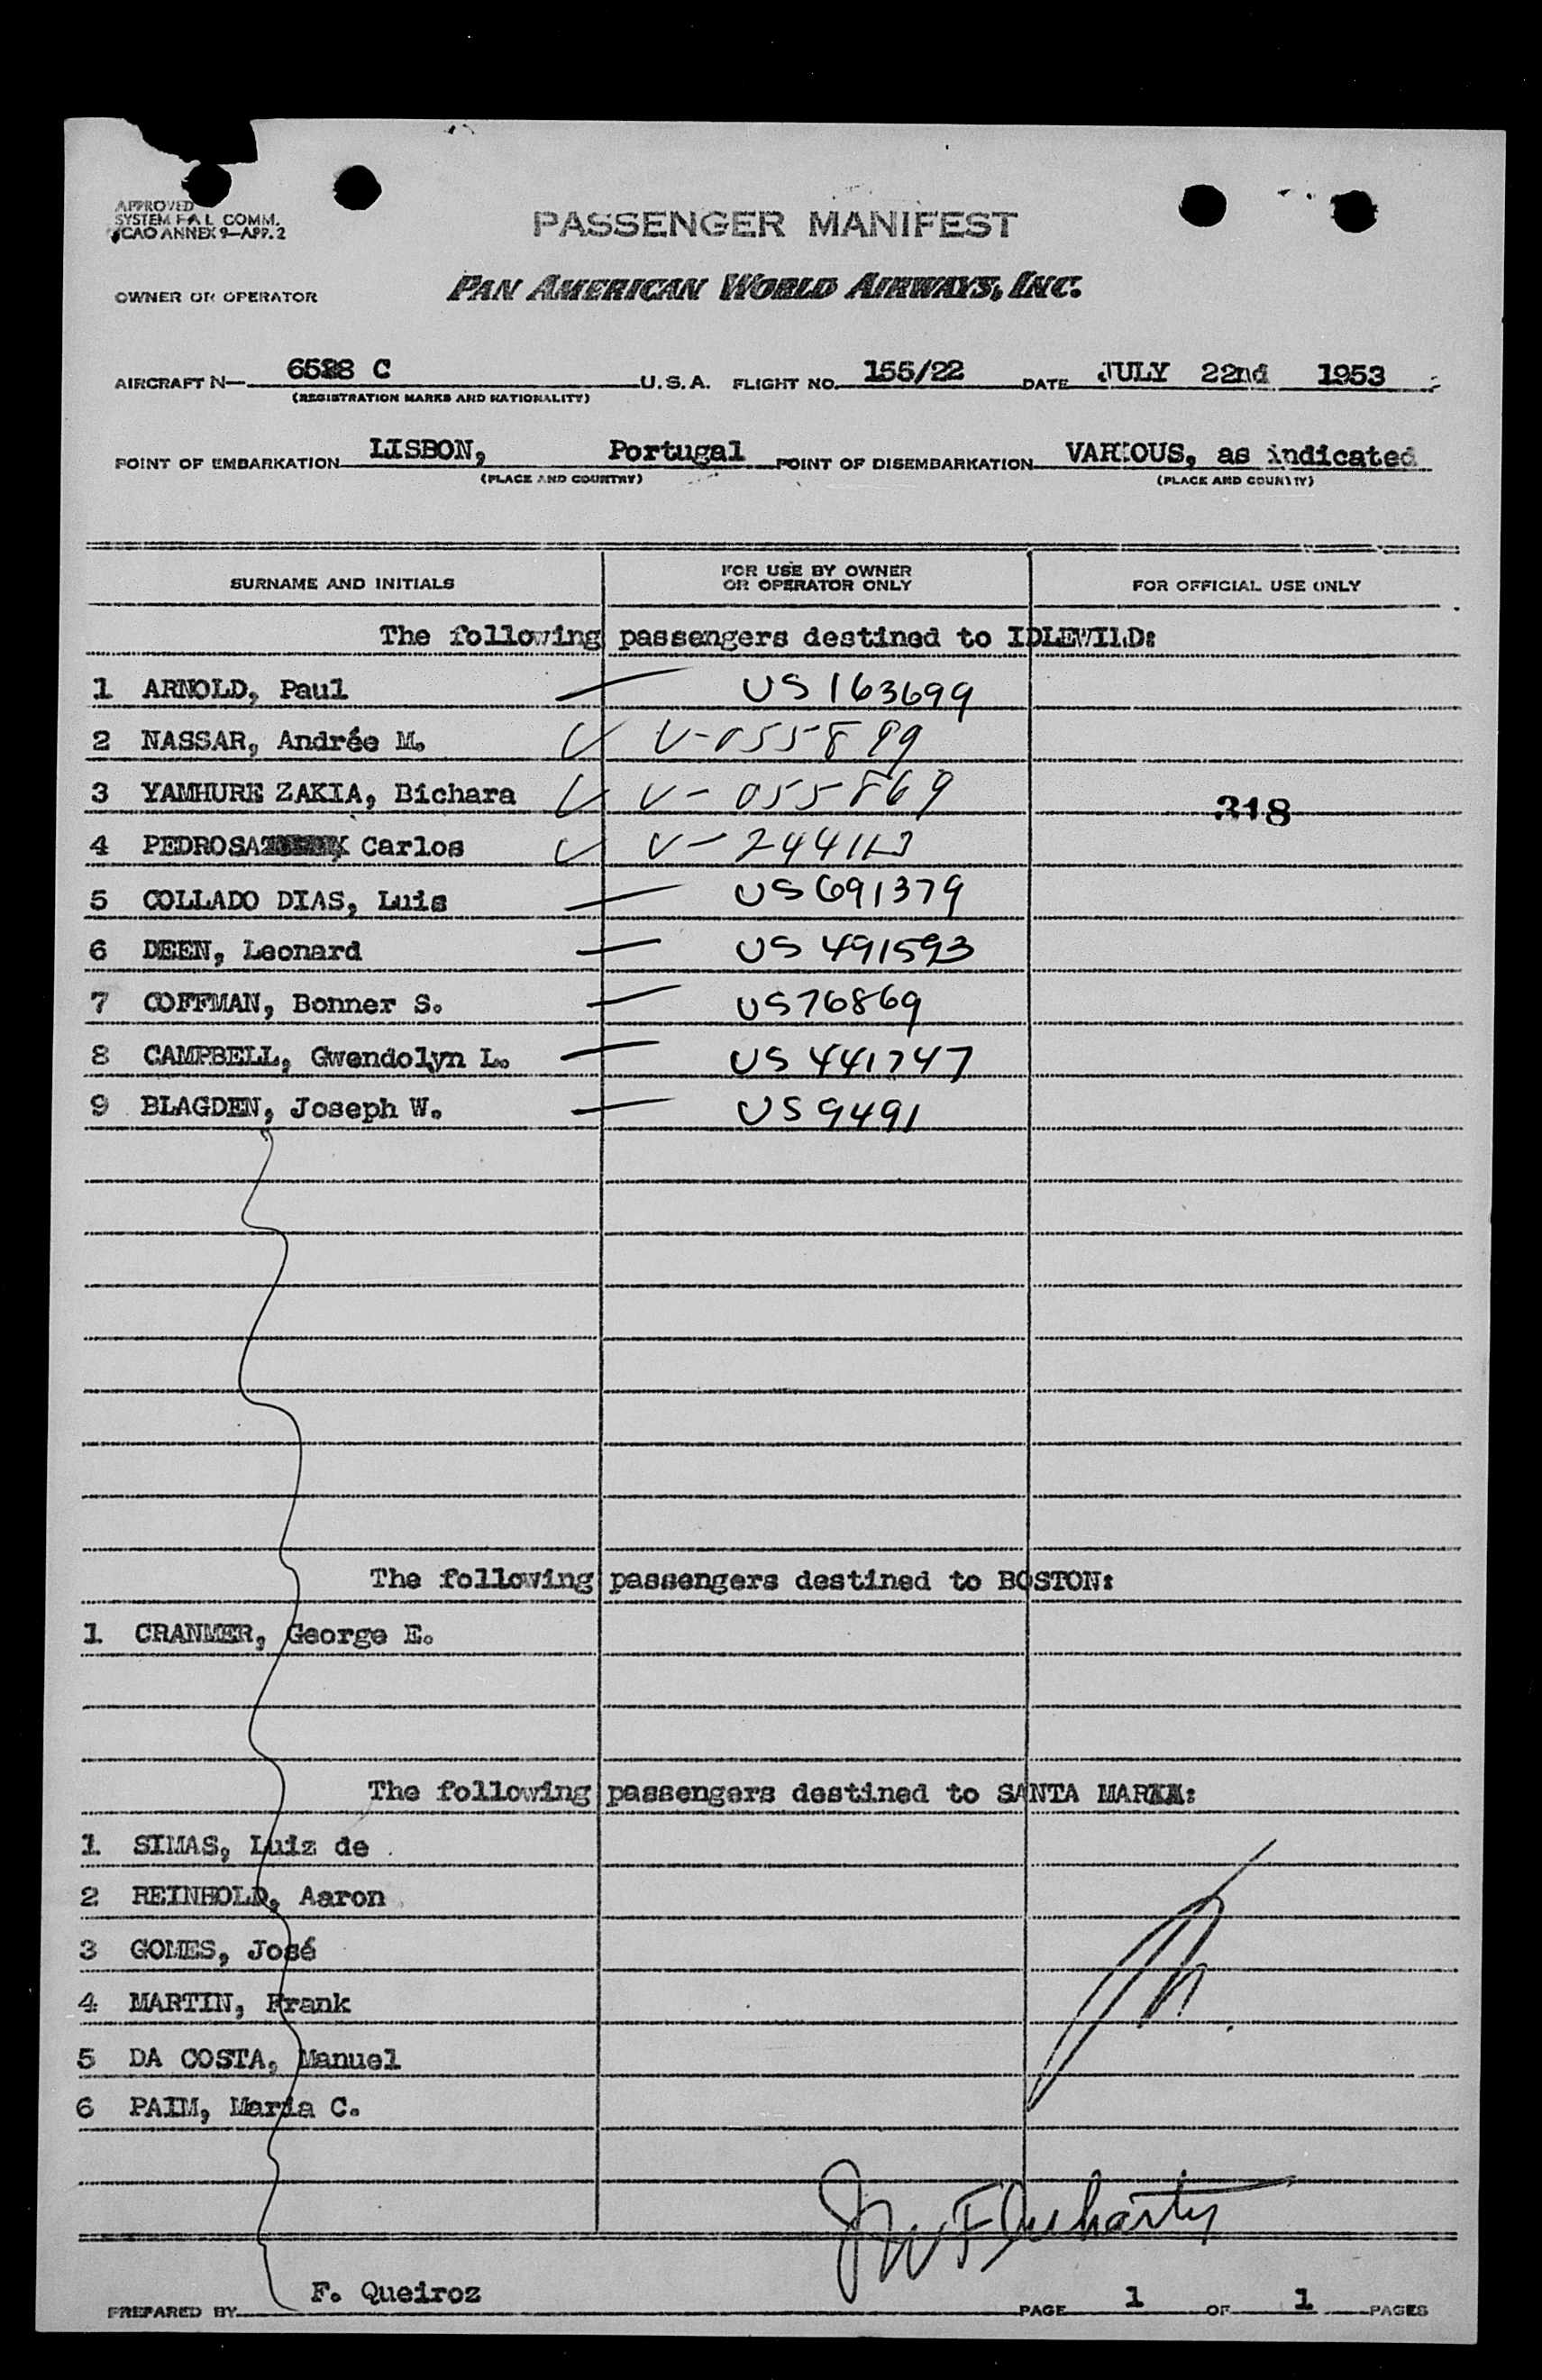 APPROVED
SYSTEM F A L COMM.
ICAO ANNEX 9—APP. 2
PASSENGER MANIFEST
OWNER OR OPERATOR PAN AMERICAN WORLD AIRWAYS, INC.
AIRCRAFT N— 6528 C U.S.A. FLIGHT NO. 155/22 DATE JULY 22nd 1953
(REGISTRATION MARKS AND NATIONALITY)
POINT OF EMBARKATION LISBON, Portugal POINT OF DISEMBARKATION VARIOUS, as indicated
(PLACE AND COUNTRY) (PLACE AND COUNTY)
SURNAME AND INITIALS FOR USE BY OWNER OR OPERATOR ONLY FOR OFFICIAL USE ONLY
The following passengers destined to IDLEWILD:
1 ARNOLD, Paul — US 163699
2 NASSAR, Andrée M. V V-055899
3 YAMHURE ZAKIA, Bichara V V-055869
318
4 PEDROSA Carlos V
5 COLLADO DIAS, Luis — US 691379
6 DEEN, Leonard — US 491593
7 COFFMAN, Bonner S. — US 76869
8 CAMPBELL, Gwendolyn L. — US 441747
9 BLAGDEN, Joseph W. — US 9491
The following passengers destined to BOSTON:
1 CRANMER, George E.
The following passengers destined to SANTA MARIA:
1 SIMAS, Luiz de
2 REINHOLD, Aaron
3 GOMES, José
4 MARTIN, Frank
5 DA COSTA, Manuel
6 PAIM, Maria C.
PREPARED BY F. Queiroz PAGE 1 OF 1 PAGES